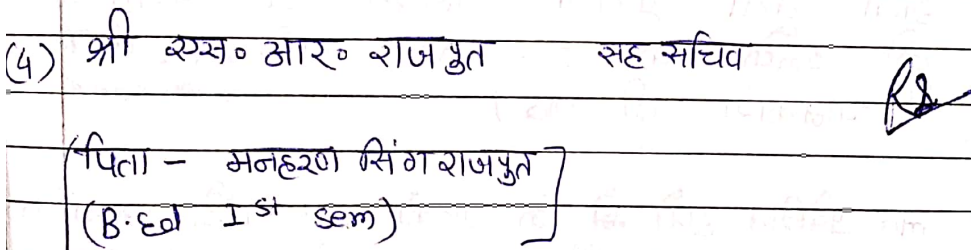 (4) श्री एस० आर० राजपुत सह सचिव
पिता - मनहरण सिंग राजपुत
(B.Ed Ist sem)